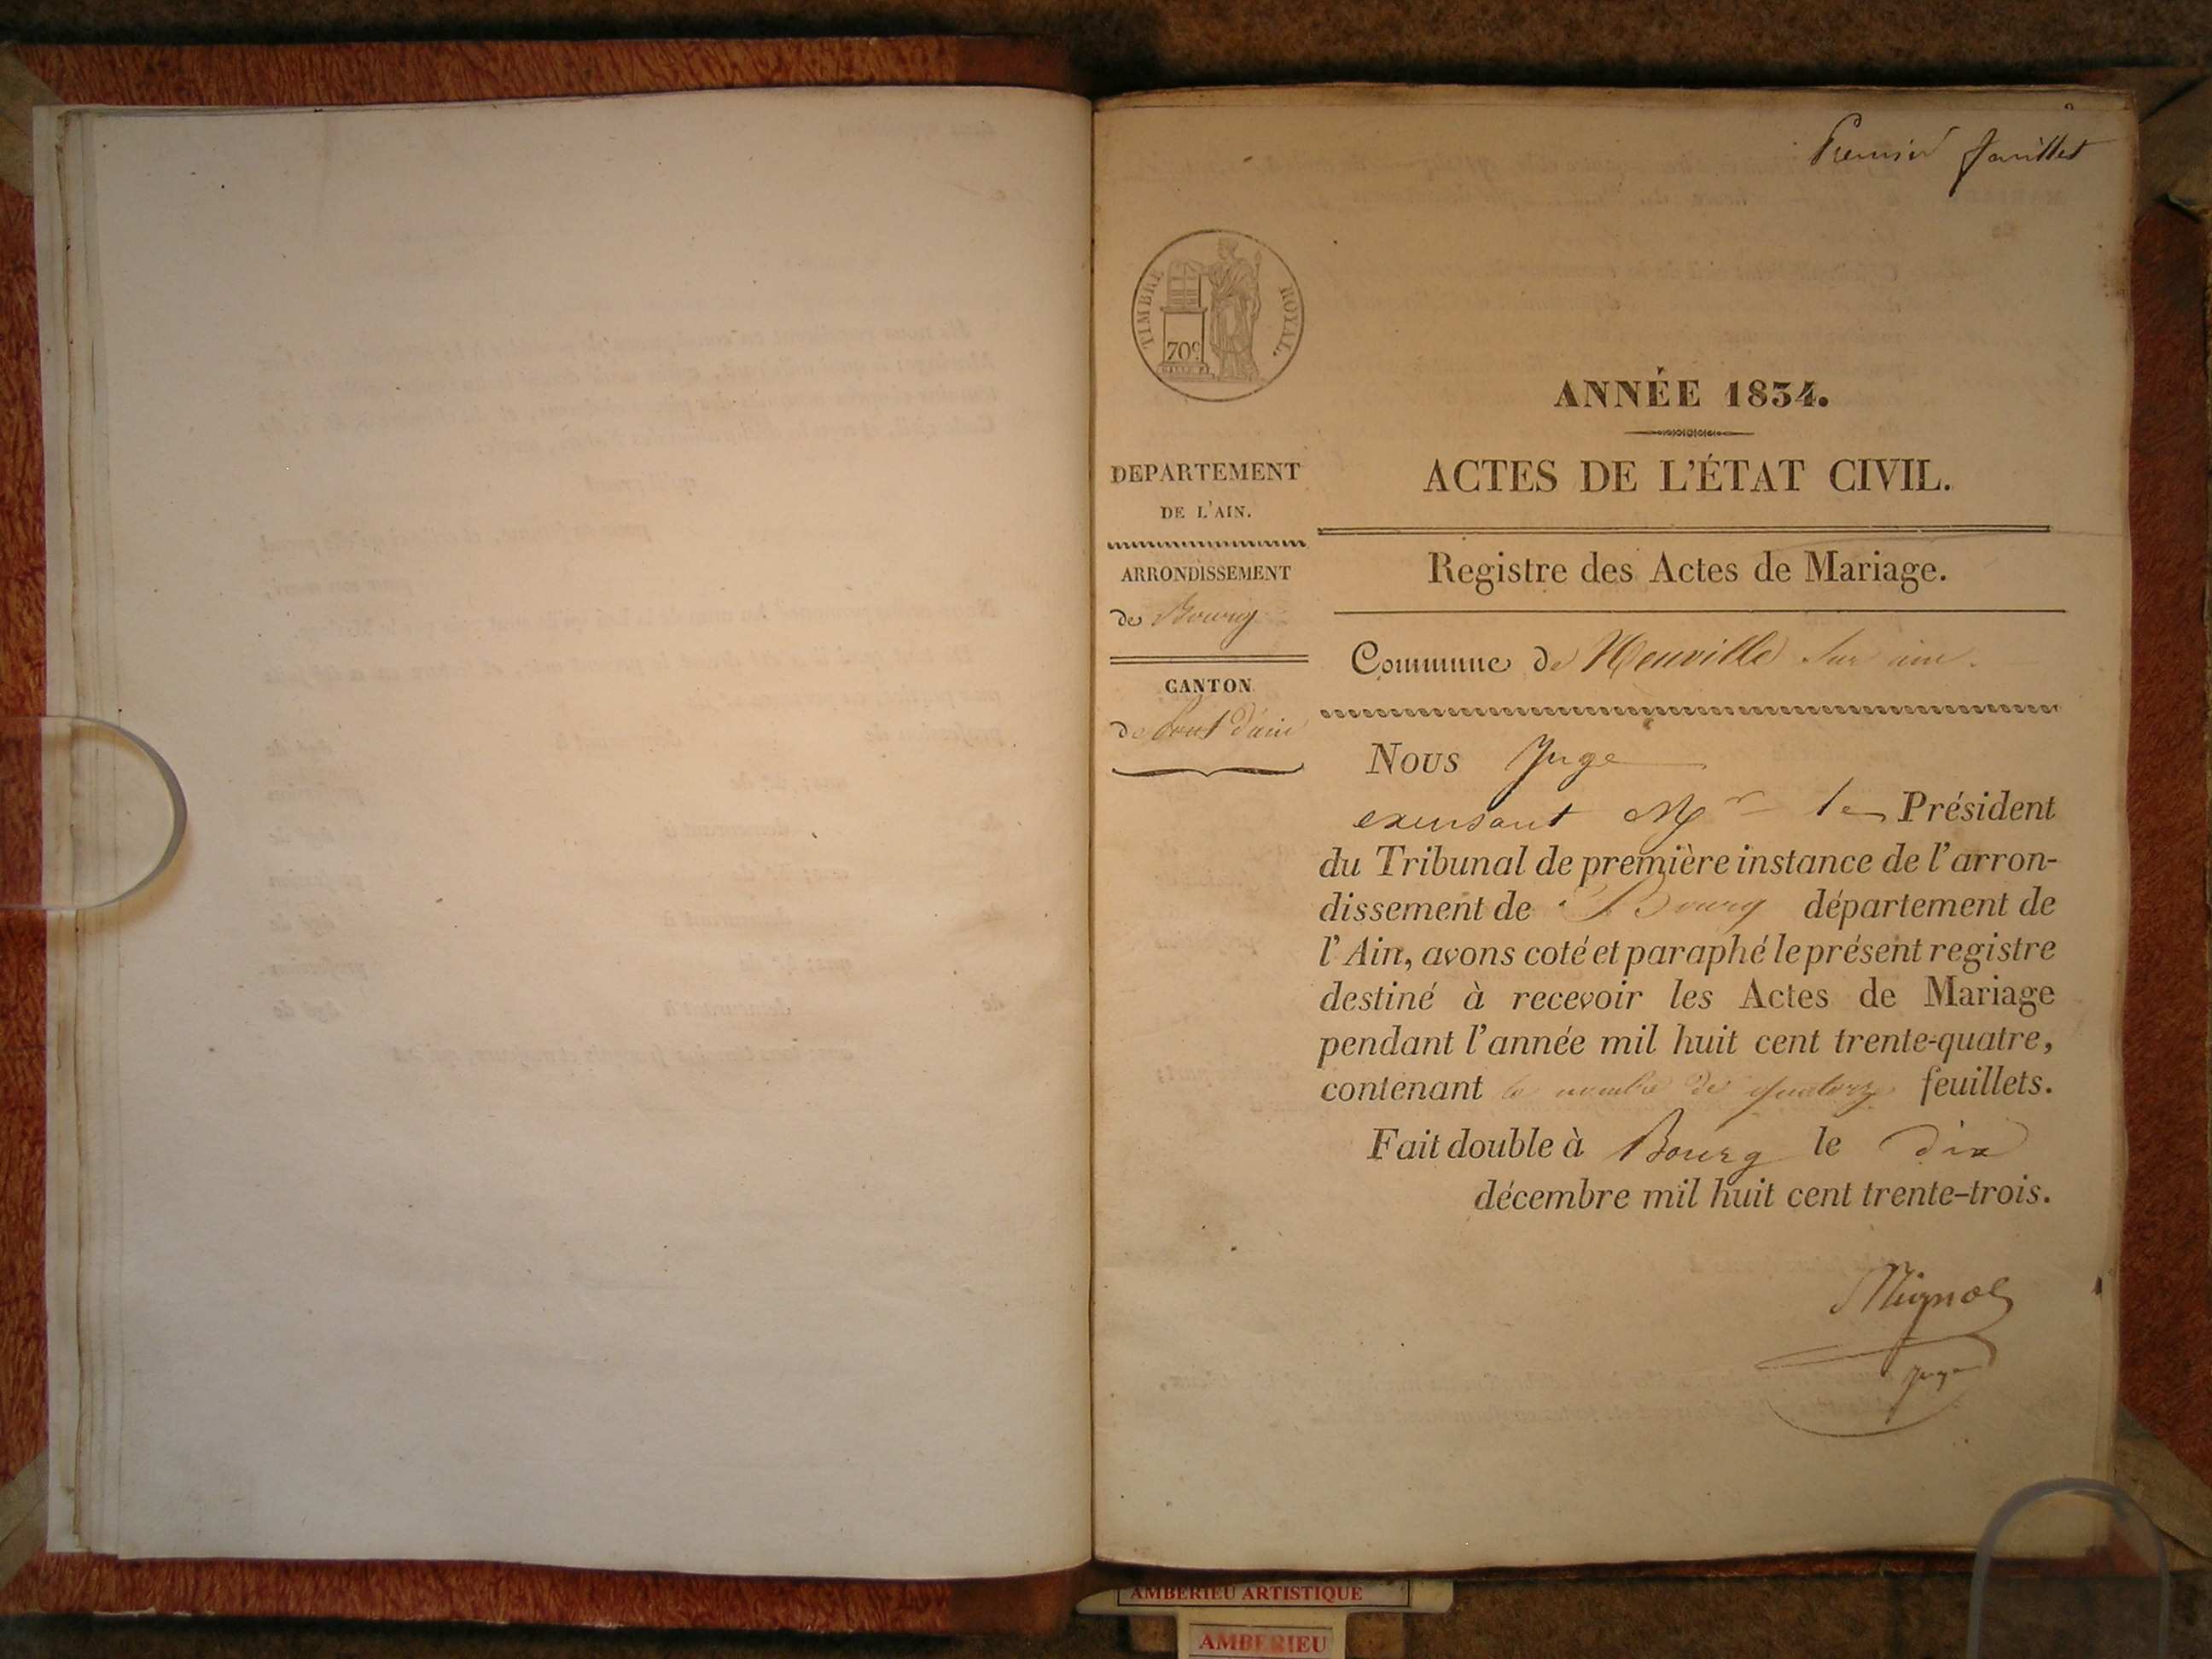 Premier feuillet
TIMBRE ROYAL.
70c
ANNÉE 1834.
ACTES DE L'ÉTAT CIVIL.
Registre des Actes de Mariage.
Commune de Neuville sur ain.
DEPARTEMENT
DE L'AIN.
ARRONDISSEMENT
de Bourg
CANTON
de Pont d'ain
Nous Juge
exensant Mr le Président
du Tribunal de première instance de l'arron-
dissement de Bourg département de
l'Ain, avons coté et paraphé le présent registre
destiné à recevoir les Actes de Mariage
pendant l'année mil huit cent trente-quatre,
contenant le nombre de quatorze feuillets.
Fait double à Bourg le dix
décembre mil huit cent trente-trois.
Juge
AMBERIEU ARTISTIQUE
AMBERIEU